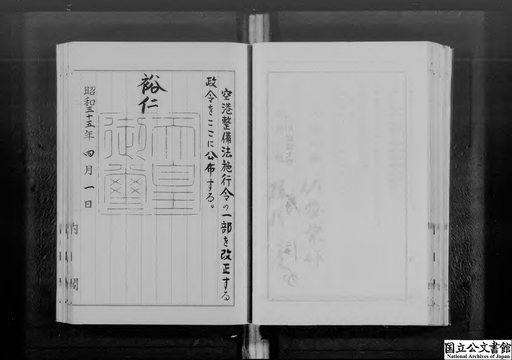 空港整備法施行令の一部を改正する
政令をここに公布する。
裕仁
天皇
御璽
昭和三十五年四月一日
内閣
国立公文書館
National Archives of Japan